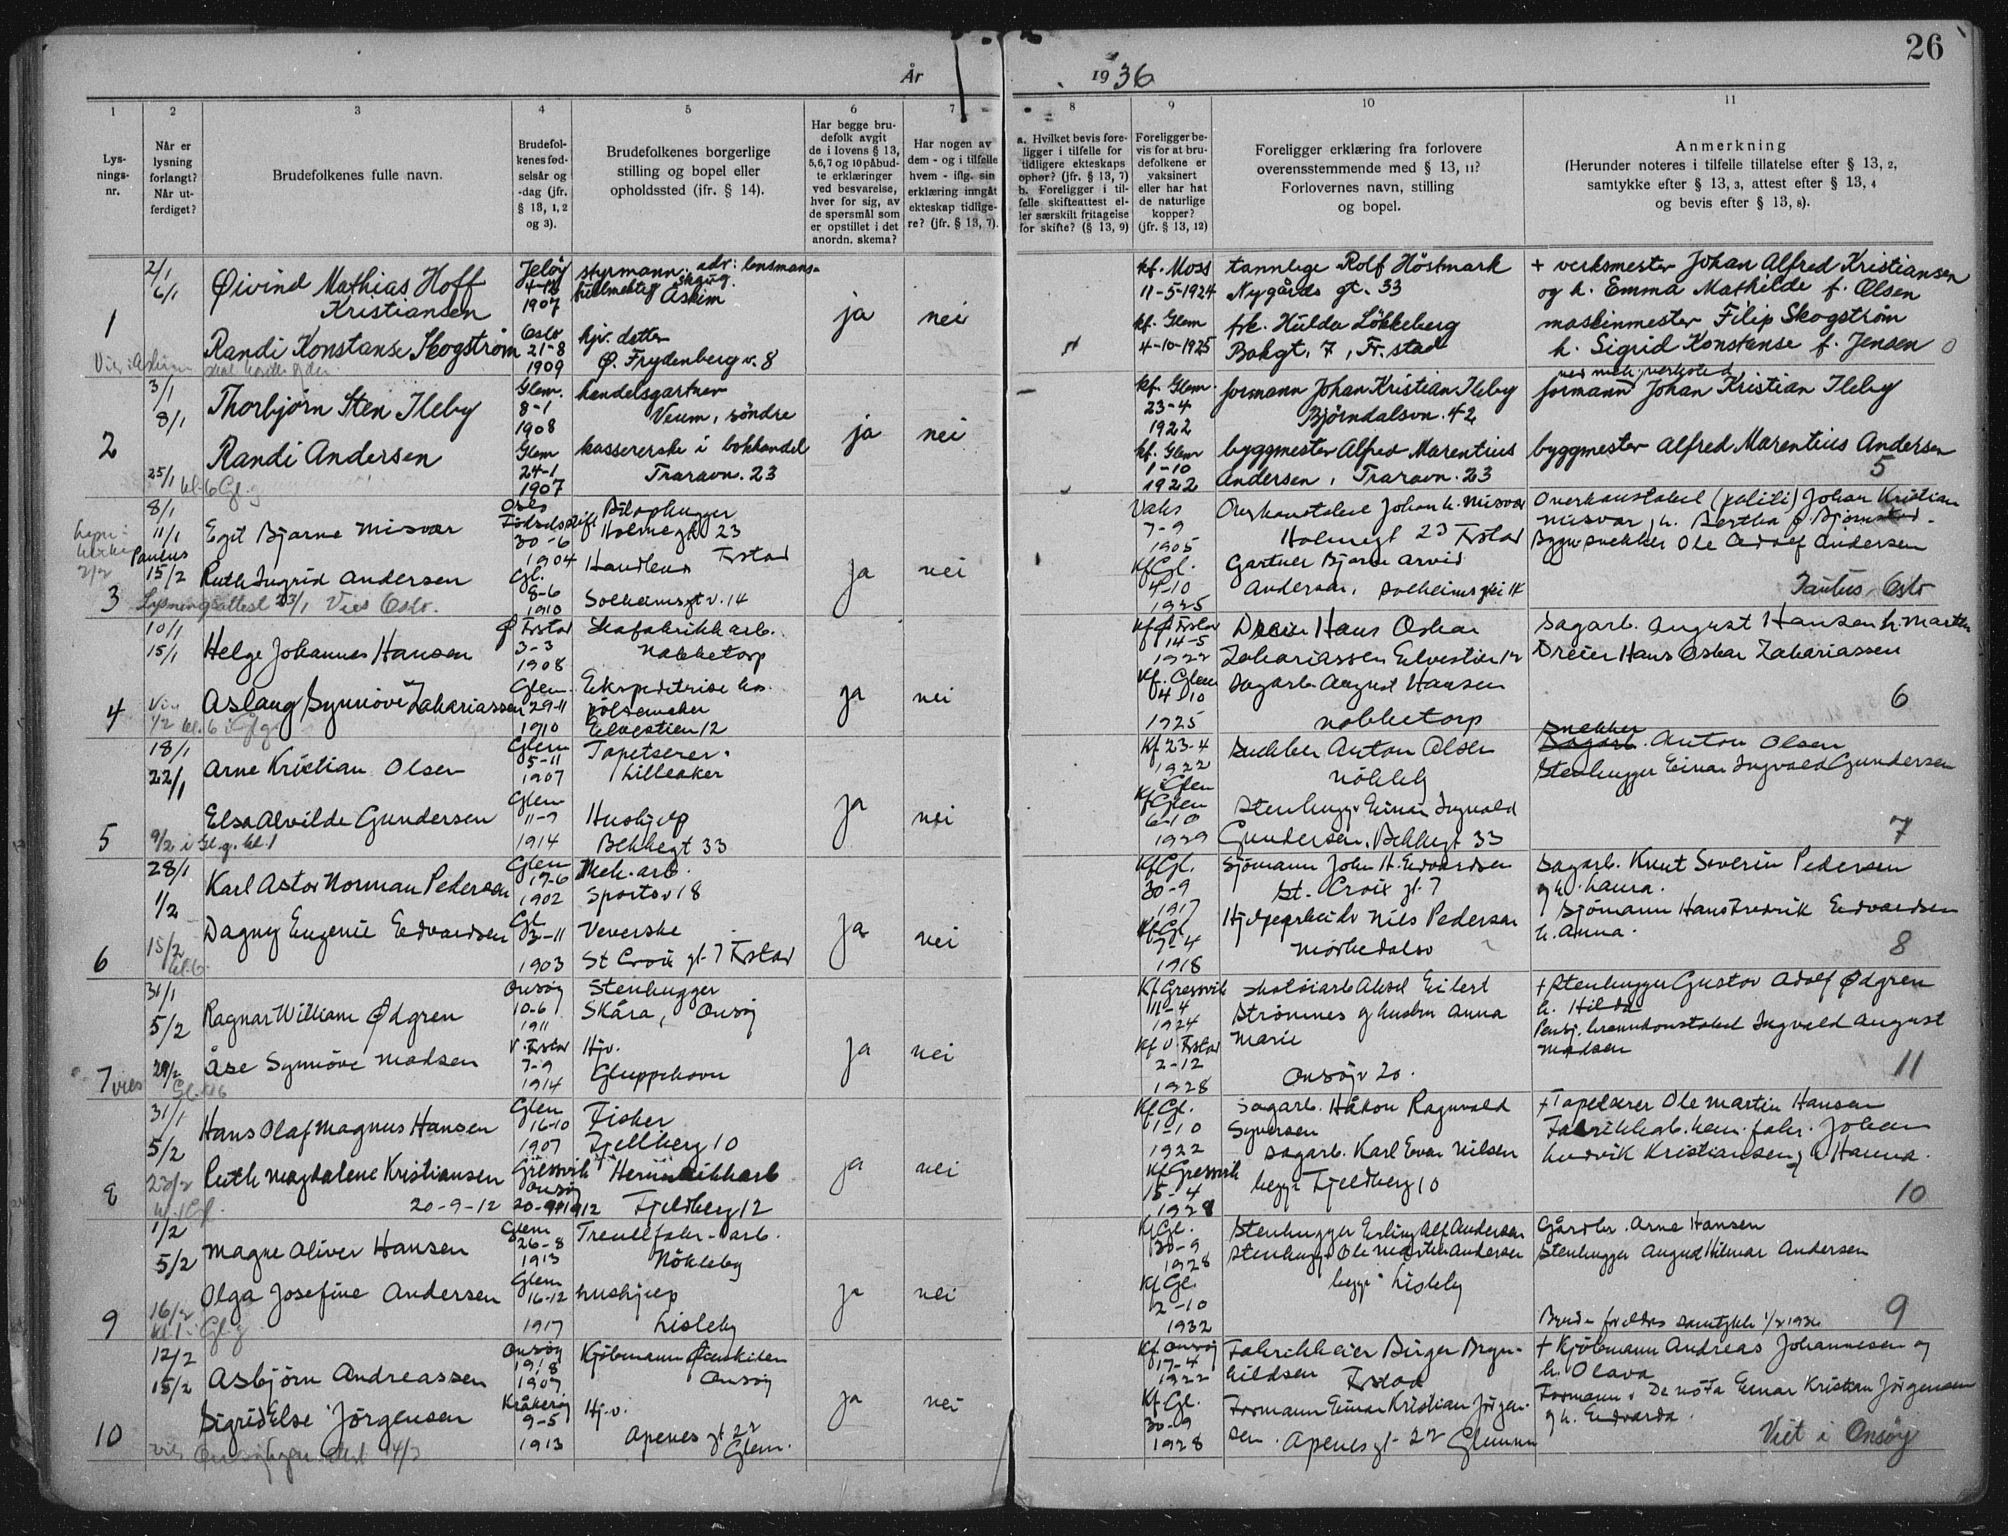 26
År 1936
1 2 3 4 5 6 7 8 9 10 11
Lys-
nings-
nr.
Når er
lysning
forlangt?
Når ut-
ferdiget?
Brudefolkenes fulle navn.
Brudefol-
kenes fød-
selsår og
-dag (jfr.
§ 13, 1, 2
og 3).
Brudefolkenes borgerlige
stilling og bopel eller
opholdssted (jfr. § 14).
Har begge bru-
defolk avgit
de i lovens § 13,
5, 6, 7 og 10 påbud-
te erklæringer
ved besvarelse,
hver for sig, av
de spørsmål som
er opstillet i det
anordn. skema?
Har nogen av
dem - og i tilfelle
hvem - iflg. sin
erklæring inngåt
ekteskap tidlige-
re? (jfr. § 13, 7).
a. Hvilket bevis fore-
ligger i tilfelle for
tidligere ekteskaps
ophør? (jfr. § 13, 7)
b. Foreligger i til-
felle skifteattest el-
ler særskilt fritagelse
for skifte? (§ 13, 9)
Foreligger be-
vis for at bru-
defolkene er
vaksinert
eller har hat
de naturlige
kopper?
(jfr. § 13, 12)
Foreligger erklæring fra forlovere
overensstemmende med § 13, 11?
Forlovernes navn, stilling
og bopel.
Anmerkning
(Herunder noteres i tilfelle tillatelse efter § 13, 2,
samtykke efter § 13, 3, attest efter § 13, 4
og bevis efter § 13, 8).
1
2/1
6/1
Øivind Mathias Hoff
Kristiansen
Jeløy
1907
styrmann, adr: lensmans-
fullmektig Askim
Randi Konstanse Skogstrøm
Oslo
21-8
1909
hjv. datter
Ø. Frydenberg v. 8
ja nei
kf. Moss
11-5-1924
kf. Glem
4-10-1925
tannlege Rolf Höstmark
Nygårds gt. 33
frk. Hulda Løkkeberg
Bakgt. 7, Fr.stad
+ verksmester Johan Alfred Kristiansen
og h. Emma Mathilde f. Olsen
maskinmester Filip Skogstrøm
h. Sigrid Konstanse f. Jensen 0
2
3/1
8/1
Thorbjørn Sten Ileby
Glem.
8-1
1908
handelsgartner
Veum, söndre
Randi Andersen
25/1 kl. 6 Gl. g
Glem
24-1
1907
kassererske i bokhandel
Traravn. 23
ja nei
kf. Glem.
23-4
1922
kf. Glem
1-10
1922
formann Johan Kristian Ileby
Björndalsvn. 42
byggmester Alfred Marentius
Andersen, Traravn. 23
ved mek. verksted
formann Johan Kristian Ileby
byggmester Alfred Marentius Andersen
5
3
8/1
11/1
Egil Bjarne Misvær
Oslo
30-6
1904
Holmegt 23
Frstad
15/2
Ruth Ingrid Andersen
Lysningsattest 23/1 Vies Oslo.
Gl.
8-6
1910
Solheimsgt v. 14
ja nei
Vaks
7-9
1905
Kf Gl.
4-10
1925
Overkonstabel Johan K. Misvær
Holmegt 23 Frstad
Gartner Bjarne Arvid
Andersen,
Overkonstabel (politi) Johan Kristian
Misvær, h. Bertha f.
Byggsnekker Ole Adolf Andersen
Oslo
4
10/1
15/1
Helge Johannes Hansen
Ø Frstad
3-3
1908
Skofabrikkarb.
Nabbetorp
Aslaug Synnöve Zakariassen
1/2 kl. 6
Glem
29-11
1910
Ekspeditrise hos
pölsemaker
Elvestien 12
ja nei
Kf Ø Frstad
14-5
1922
Kf. Glem
4-10
1925
Dreier Hans Oskar
Zakariassen Elvestien 12
Sagarb. August Hansen
Nabbetorp
Sagarb. August Hansen h. Marthe
Dreier Hans Oskar Zakariassen
6
5
18/1
22/1
Arne Kristian Olsen
Glem
5-11
1907
Tapetserer.
Lilleaker
Elsa Alvilde Gundersen
9/2 i Gl. g. kl. 1
Glem
11-9
1914
Hushjelp
Bekkegt 33
ja nei
Kf 23-4
1922
i Glem
Kf Glem
6-10
1929
Snekker Anton Olsen
Nökleby
Stenhugger Einar Ingvald
Gundersen, Bekkegt 33
Snekker
Sagarb. Anton Olsen
Stenhugger Einar Ingvald Gundersen
7
6
28/1
1/2
Karl Astor Norman Pedersen
Glem
17-6
1902
Mek. arb.
Sportsv 18
Dagny Eugenie Edvardsen
15/2
kl. 6.
Gl
3-11
1903
Veverske
St Croix gt. 7 Frstad
ja nei
Kf Gl.
30-9
1917
Kf Gl.
7-4
1918
Sjömann John H. Edvardsen
St. Croix gt. 7
Hjelpearbeider Nils Pedersen
Sagarb. Knut Severin Pedersen
og h. Laura.
Sjömann Hans Fredrik Edvardsen
h. Anna.
8
7
31/1
5/2
Ragnar William Ødgren
Onsøy
10-6
1911
Stenhugger
Skåra, Onsøy
Åse Synnöve Madsen
V. Frstad
7-9
1914
Hjv.
Gluppehavn
ja nei
Kf Gressvik
11-4
1924
Kf V. Frstad
2-12
1928
Skotöiarb Aksel Eilert
Strömnes og hustru Anna
Marie
Onsøyv 20.
+ Stenhugger Gustav Adolf Ødgren
h. Hilda
Pensj. brannkonstabel Ingvald August
Madsen
11
8
31/1
5/2
Hans Olaf Magnus Hansen
Glem
16-10
1907
Fisker
Fjellberg 10
Ruth Magdalene Kristiansen
20-9-12
Gressvik
Onsøy
20-9 1912
Fjeldberg 12
ja nei
Kf Gl.
1-10
1922
Kf Gressvik
15-4
1928
Sagarb. Håkon Ragnvald
Syversen
Sagarb. Karl Evar Nilsen
begge Fjeldberg 10
+ Tapetserer Ole Martin Hansen
Fabrikkarb. Johan
Ludvik Kristiansen og h Hanna.
10
9
1/2
5/2
Magne Oliver Hansen
Glem
26-8
1913
Treullfabr.-arb.
Nökleby
Olga Josefine Andersen
16/2
Glem
16-12
1917
hushjelp
Lisleby
ja nei
Kf Gl.
30-9
1928
Kf Gl.
2-10
1932
Stenhugger Erling Alf Andersen
Stenhugger Ole Martin Andersen
begge Lisleby
Gårdbr. Arne Hansen
Stenhugger August Hilmar Andersen
Brudens foreldres samtykke 1/2 1936
9
10
12/2
15/2
Asbjørn Andreassen
Onsøy
19/8
1907
Kjöbmann
Onsøy
Sigrid Else Jörgensen
Kråkerøy
9-5
1913
Hjv.
Apenes gt 22
Glem.
ja nei
Kf Onsøy
17-4
1922
Kf. Gl.
30-9
1928
Fabrikkeier Birger Bryn-
hildsen Frstad
Formann Einar Kristian Jörgen-
sen. Apenesgt- 22 Glemmen
+ Kjöbmann Andreas Johannesen og
h. Olava
Formann v. De nofa Einar Kristian Jörgensen
og h. Edvarda.
Viet i Onsøy